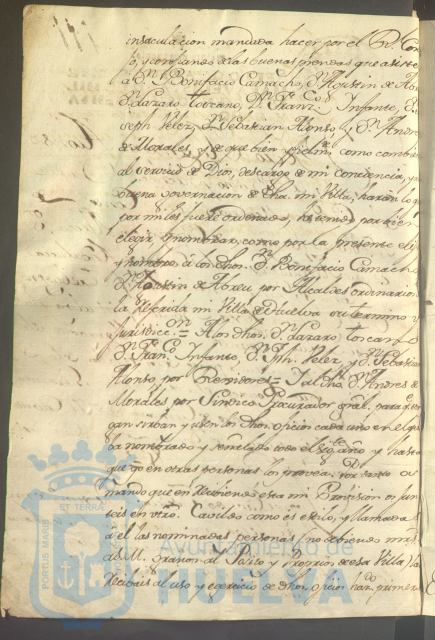 insaculacion mandada hacer por el Rl. Con
lo, y confiando de las buenas prendas que asisten
a Dn. Bonifacio Camacho, Dn. Agustin de Abr
Dn. Lazaro toscano, Dn. Franco. Infante, Dn
Joseph Velez, Dn. Sebastian Alonso, y Dn. Andres
de Morales, y de que bien y fielmte. como combien
al servicio de Dios, descargo de mi Conciencia, y
buena governacion de dha. mi Villa, harán lo q
por mi les fuere ordenado, he tenido por bien
elegir y nombrar, como por la presente eli
y nombro á los dhos. Dn. Bonifacio Camacho
Dn. Agustin de Abreu por Alcaldes ordinarios
la referida mi Villa de Huelva su termino y
Jurisdicon. = A los dhos. Dn. Lazaro toscano
Dn. Franco. Infante, Dn. Jph. Velez, y Dn. Sebastian
Alonso, por Regidores = Y al dho. Dn. Andres de
Morales por Sindico Procurador gral. para q. ten
gan sirban y usen los dhos. oficios cada uno en el q. va
nombrado y todo el año y hasta
que yo en otras personas los provea; por tanto os
mando que en recibiendo esta mi Provision os jun
teis en vro. Cavildo como es estilo, y llamada
á él las nominadas personas (no debiendo mrs
á S.M. (que Dios) ni al Posito y Propios de esa Villa) las
recibais al uso y egercicio de dhos. oficios hazdo. primero
PORTUS MARIS ET TERRAE
Ayuntamiento de
HUELVA